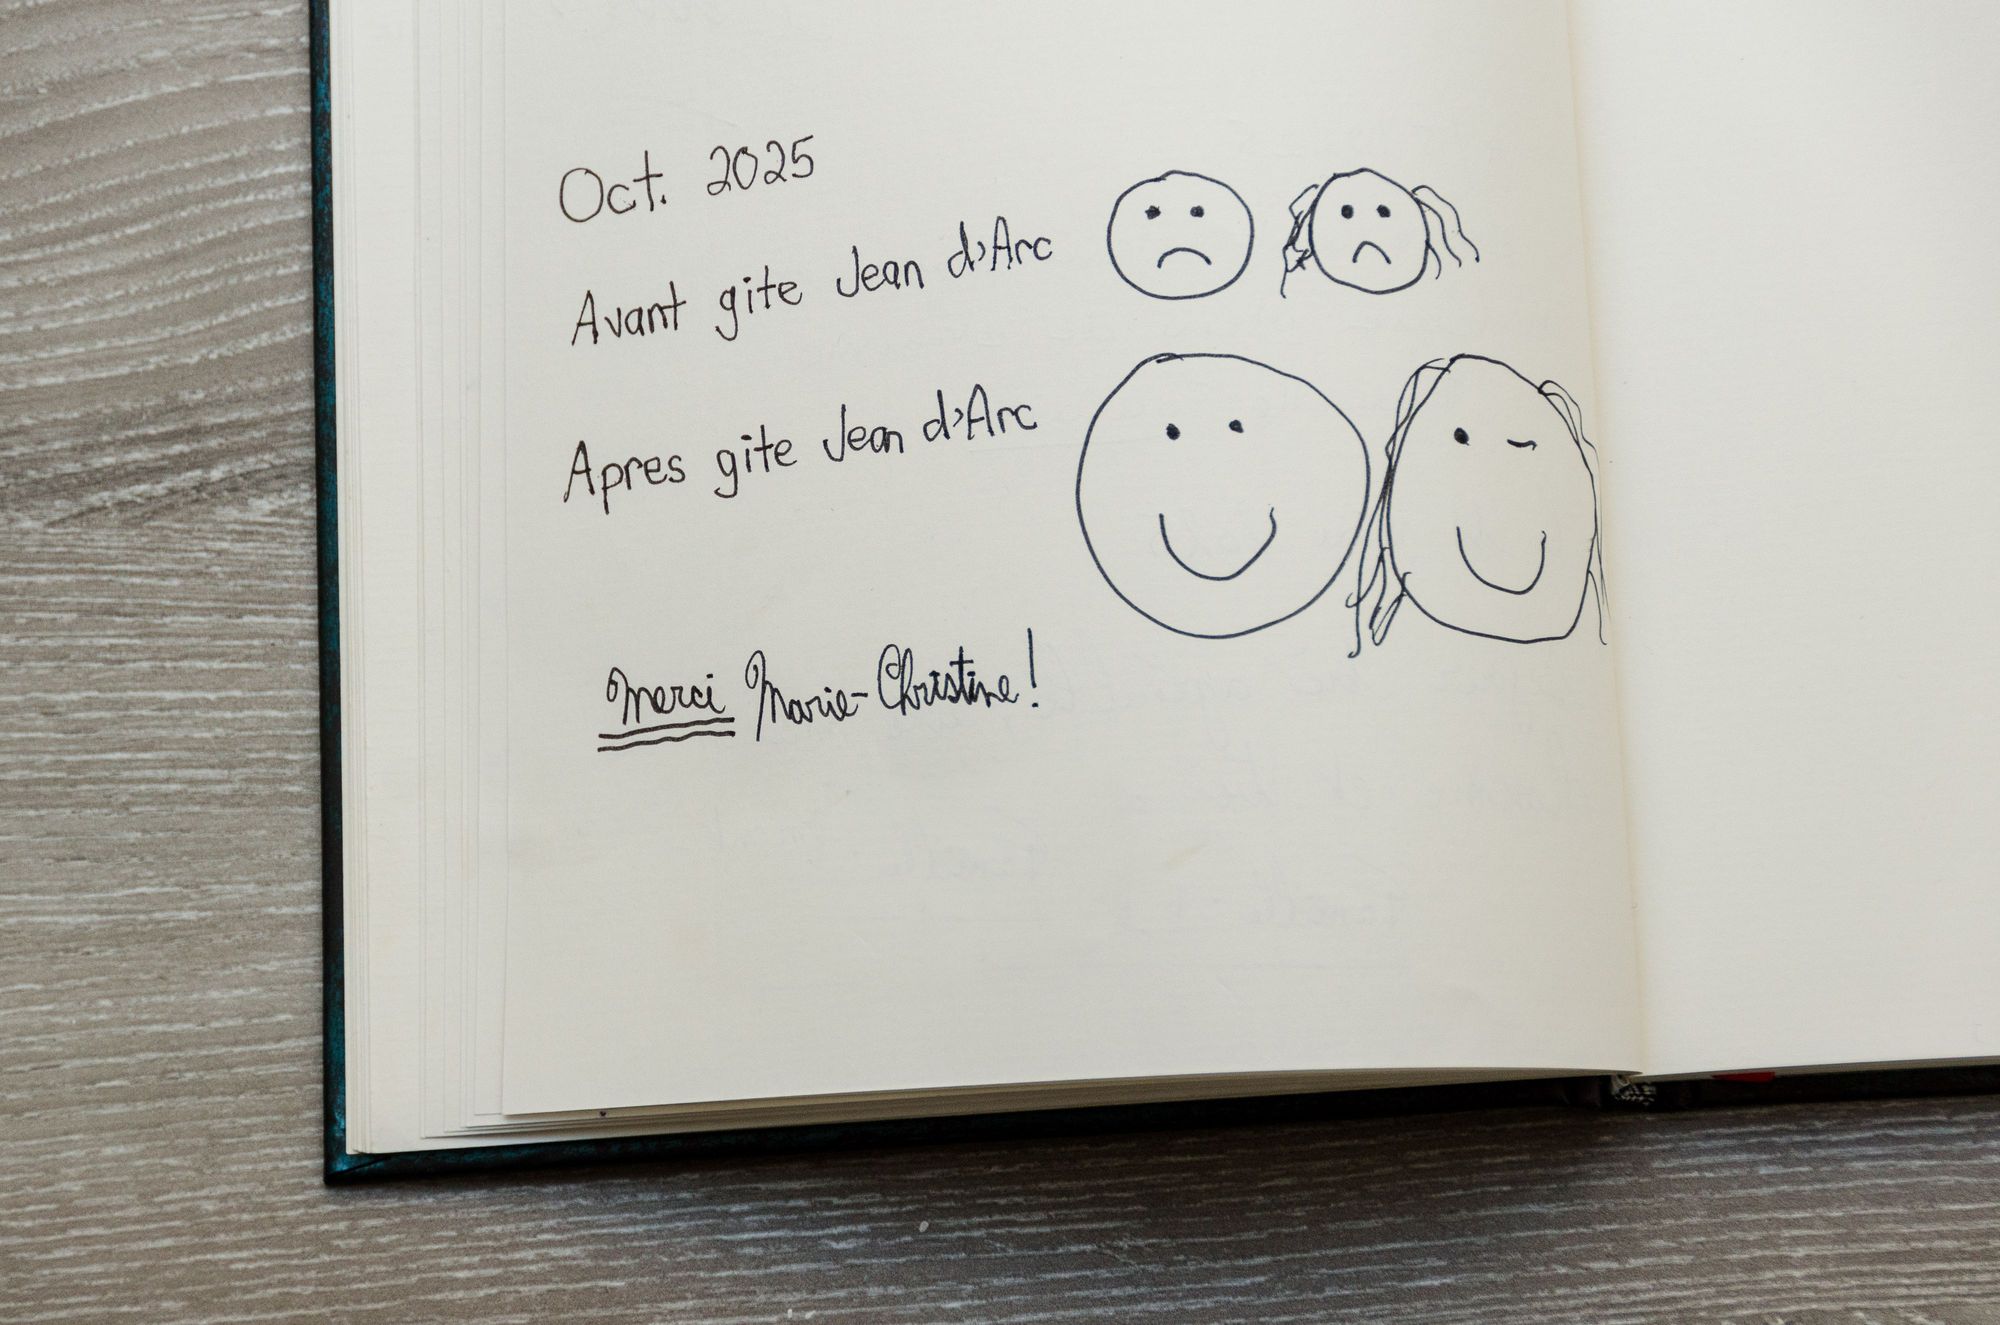 Oct. 2025
Avant gite Jean d'Arc
Apres gite Jean d'Arc
Merci Marie-Christine!